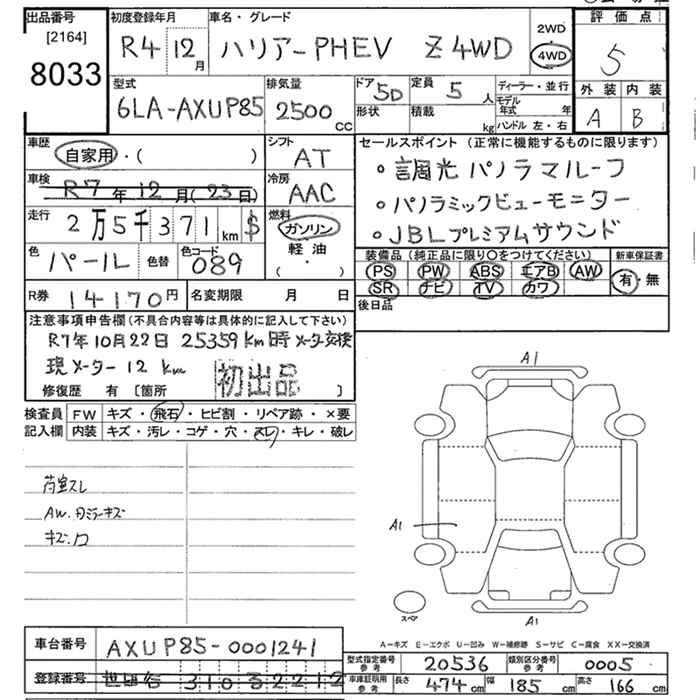 出品番号
[2164]
8033
初度登録年月
R4 12月
車名・グレード
ハリアーPHEV Z 4WD
2WD
4WD
評価点
5
外装 内装
A B
型式
6LA-AXUP85
排気量
2500cc
ドア
5D
形状
定員
5人
積載
kg
ディーラー・並行
モデル年式 年
ハンドル 左・右
車歴
自家用・( )
シフト
AT
車検
R7年12月(23日)
冷房
AAC
走行
2万5千371km $
燃料
ガソリン
軽油
( ・ )
色
パール
色替
色コード
089
R券 14170円
名変期限 月 日
セールスポイント (正常に機能するものに限ります)
・調光パノラマルーフ
・パノラミックビューモニター
・JBLプレミアムサウンド
装備品 (純正品に限り○をつけてください)
PS PW ABS エアB AW
SR ナビ TV カワ
新車保証書
有・無
後日品
注意事項申告欄(不具合内容等は具体的に記入して下さい)
R7年10月22日 25359km時メーター交換
現メーター12km
初出品
修復歴 有 [箇所 ]
検査員記入欄
FW キズ・飛石・ヒビ割・リペア跡・×要
内装 キズ・汚レ・コゲ・穴・スレ・キレ・破レ
荷室スレ
AW.
キズ.
A1
A1
A1
スペア
A−キズ E−エクボ U−凹み W−補修跡 S−サビ C−腐食 XX−交換済
車台番号 AXUP85-0001241
登録番号
310
2212
型式指定番号
参考
20536
類別区分番号
参考
0005
車庫証明用
参考
長さ 474cm 幅 185cm 高さ 166cm